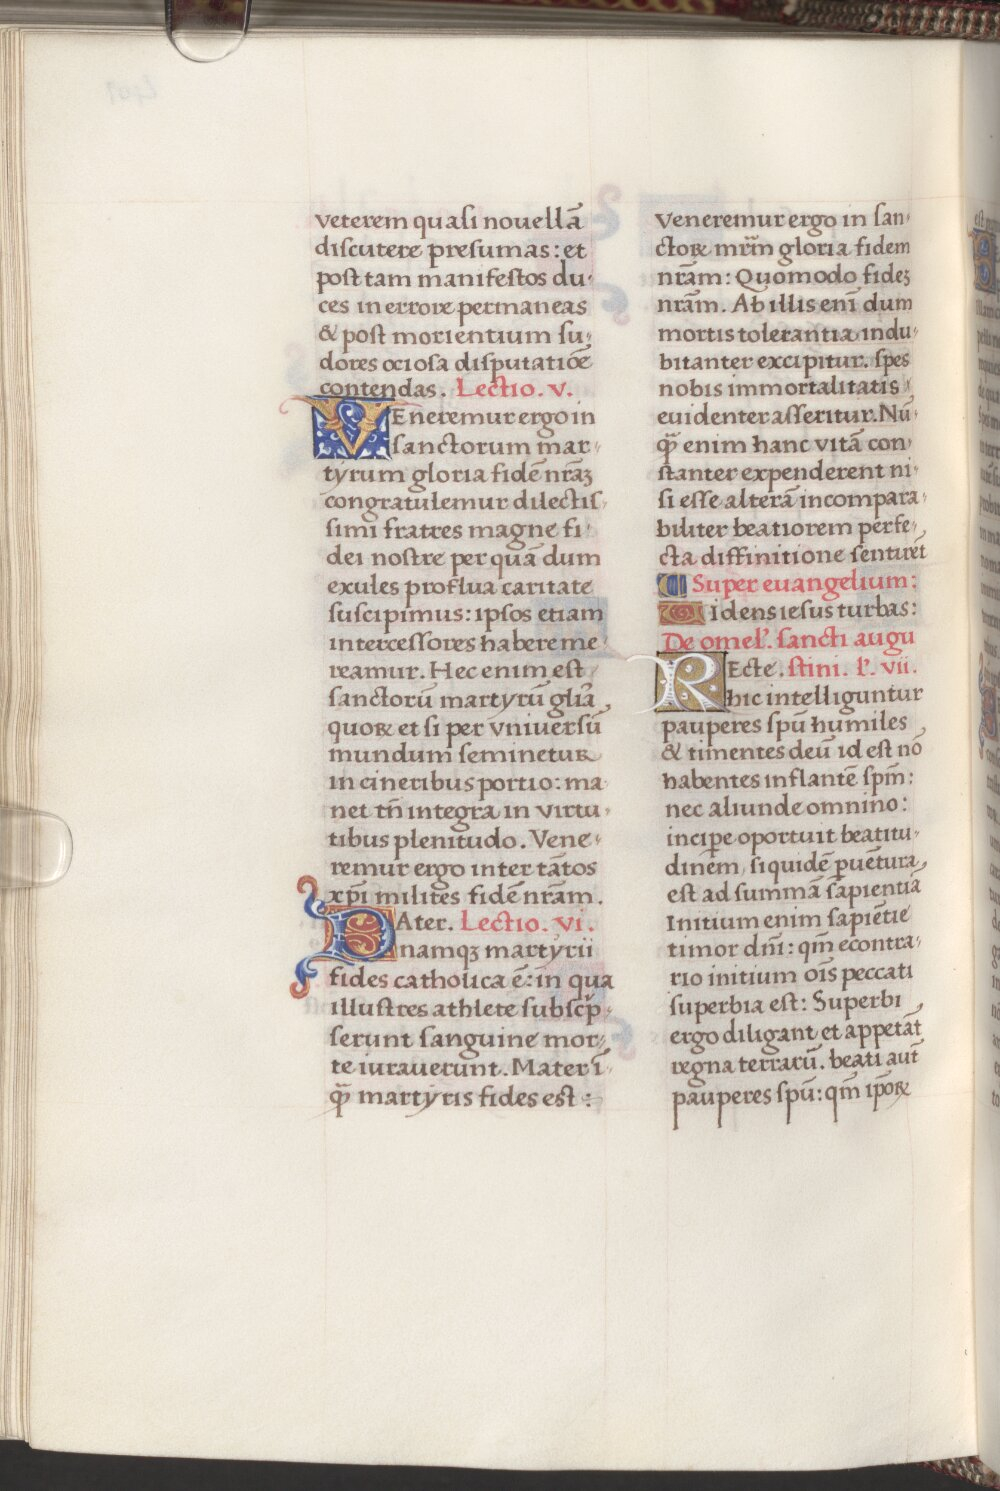 veterem quasi nouellā
discutere presumas: et
post tam manifestos du-
ces in errore permaneas
& post morientium su-
dores ociosa disputatiōe
contendas. Lectio. v.
VEneremur ergo in
sanctorum mar-
tyrum gloria fidē nrāꝫ
congratulemur dilectis-
simi fratres magne fi-
dei nostre per quā dum
exules proflua caritate
suscipimus: ipsos etiam
intercessores habere me-
reamur. Hec enim est
sanctorū martyrū glīa
quoꝝ et si per vniversū
mundum seminetur
in cineribus portio: ma-
net tn̄ integra in virtu-
tibus plenitudo. Vene-
remur ergo inter tātos
xp̄i milites fidē nrām.
PAter. Lectio. vi.
namqꝫ martyrii
fides catholica ē: in qua
illustres athlete subscp̄-
serunt sanguine mor-
te iuraverunt. Mater ī-
qͣꝫ martyris fides est:
Veneremur ergo in san-
ctoꝝ mr̄m gloria fidem
nrām: Quomodo fideꝫ
nrām. Ab illis enī dum
mortis tolerantia indu-
bitanter excipitur. spes
nobis immortalitatis
euidenter asseritur. Nū-
qͣꝫ enim hanc vitā con-
stanter expenderent ni-
si esse alterā incompara-
biliter beatiorem perfe-
cta diffinitione sentirēt
¶ Super euangelium:
Videns iesus turbas:
De omel'. sancti augu
REcte. stini. l'. vii.
hic intelliguntur
pauperes spū humiles
& timentes deū id est nō
habentes inflantē spm̄:
nec aliunde omnino:
incipe oportuit beatitu-
dinem, siquidē puētura
est ad summā sapientiā
Initium enim sapiētie
timor dn̄i: qm̄ econtra-
rio initium oīs peccati
superbia est: Superbi
ergo diligant et appetāt
regna terrarū. beati aut̄
pauperes spū: qm̄ ip̄oꝝ